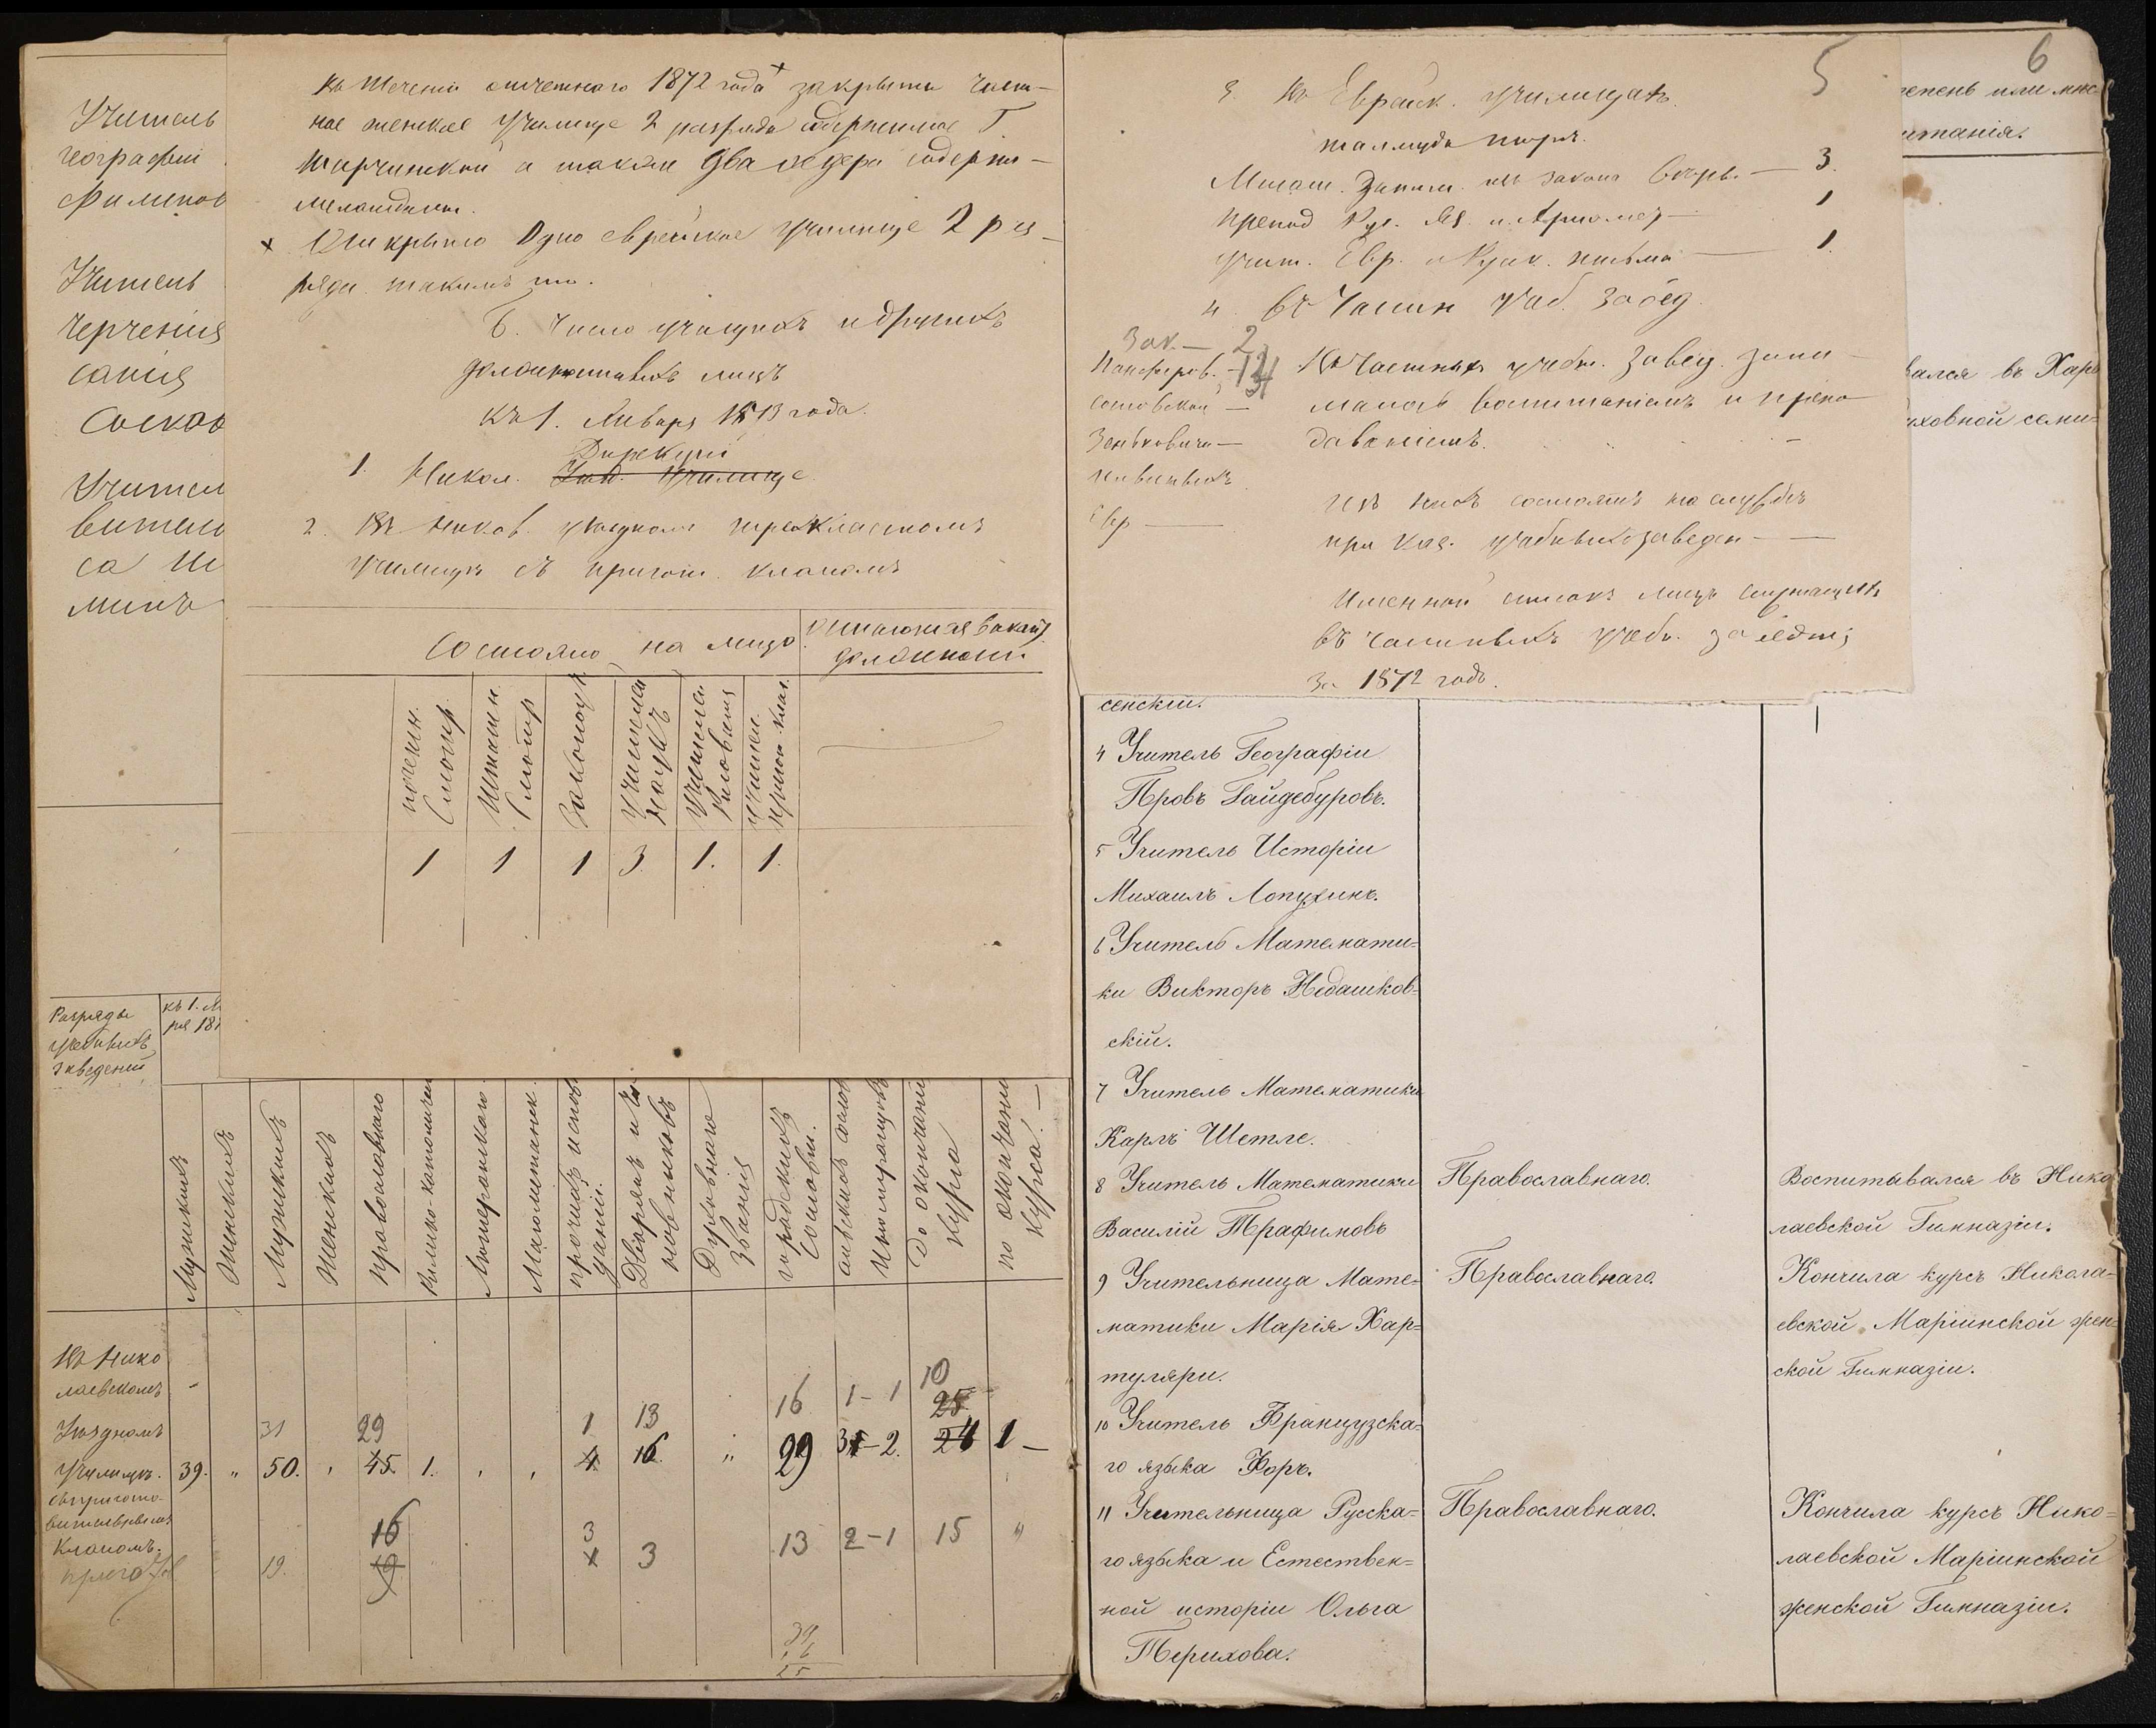 Учитель
географіи
Филипов
Учитель
черченія
санія
Сосков
Учител
вител
са
минъ
Въ теченіи отчетнаго 1872 года закрыты част-
ное женское Училище 2 разряда содержимое Г.
а также два хедера содержи-
меламдами.
× Открыто Одно еврейское училище 2 раз-
ряда такимъ
Б. Число учащихъ и другихъ
должностныхъ лицъ
къ 1. Января 1873 года.
Дирекціи
1. Никол. Уѣзд. Училище
2. Въ Никол. уѣздномъ трехклассномъ
училищѣ съ пригот. классомъ
Состояло на лицо
вакант.
должности
почетн. смотр.
Штатн. смотр
Законоуч
Учителей наукъ
Учитель рисованія
Учител. пригот. клас.
1 1 1 3 1. 1.
Разряды
учебныхъ
заведеній
къ 1.
ря 187
Мужскихъ
Женскихъ
Мужскихъ
Женскихъ
православнаго
Римско-католичес
Лютеранскаго
Магометанск.
прочихъ испов
даній.
Дворянъ и Чи
новниковъ
Духовнаго
званія
городскихъ
сословій.
сельскихъ сослов
Иностранцовъ
До окончанія
курса
по окончаніи
курса.
Въ Нико
лаевскомъ
Уѣздномъ
Училищѣ.
съ пригото-
вительнымъ
классомъ.
16 1 - 1 10
31 29 1 13 25
39. " 50. 45. 1. 4 16 " 29 3 - 2. 24 1 -
16 3
19. 19 3 13 2 - 1 15 "
5
6
3. Въ Еврейск. училищахъ.
талмудъ торѣ.
закона вѣры. — 3.
препод Рус. Яз. и Ариѳмет — 1
учит. Евр. и Русс. письма — 1.
4. въ Частн учеб. завед.
Зак. — 2
Въ Частныхъ учебн. завед. зани-
мались воспитаніемъ и препо-
даваніемъ.
Зеньковича —
Евр —
Изъ нихъ состоятъ на службѣ
при Каз. учебныхъ заведен —
Именной списокъ лицъ служащихъ
въ частныхъ учебн. заведен;
За 1872 годъ.
степень или мѣс
итанія.
вался въ Харь
уховной семи-
сенскій.
4 Учитель Географіи
Провъ Гайдебуровъ.
5 Учитель Исторіи
Михаилъ Лопухинъ.
6 Учитель Математи-
ки Викторъ Недашков-
скій.
7 Учитель Математики
Карлъ Шетле.
8 Учитель Математики
Василій Трафимовъ
Православнаго.
Воспитывался въ Нико
лаевской Гимназіи.
9 Учительница Мате-
матики Марія Хар-
туляри.
Православнаго.
Кончила курсъ Никола-
евской Маріинской жен-
ской Гимназіи.
10 Учитель Французска-
го языка Форъ.
11 Учительница Русска-
го языка и Естествен-
ной исторіи Ольга
Терихова.
Православнаго.
Кончила курсъ Нико-
лаевской Маріинской
женской Гимназіи.